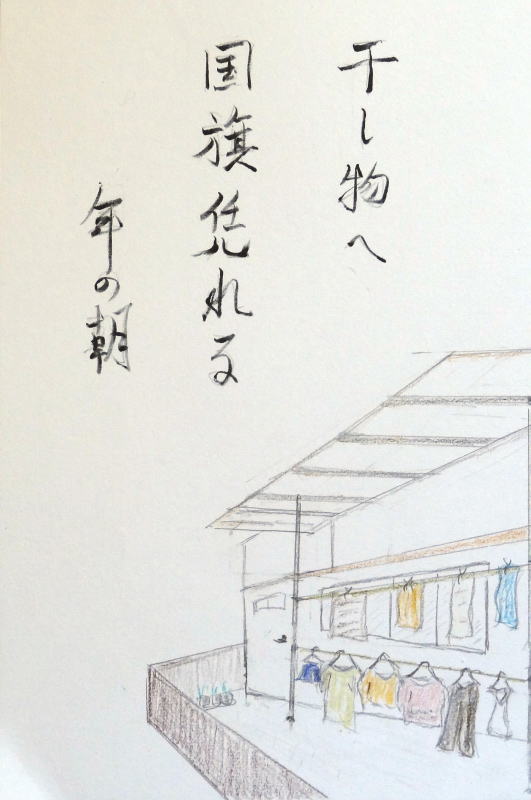 干し物へ
国旗凭れる
年の朝